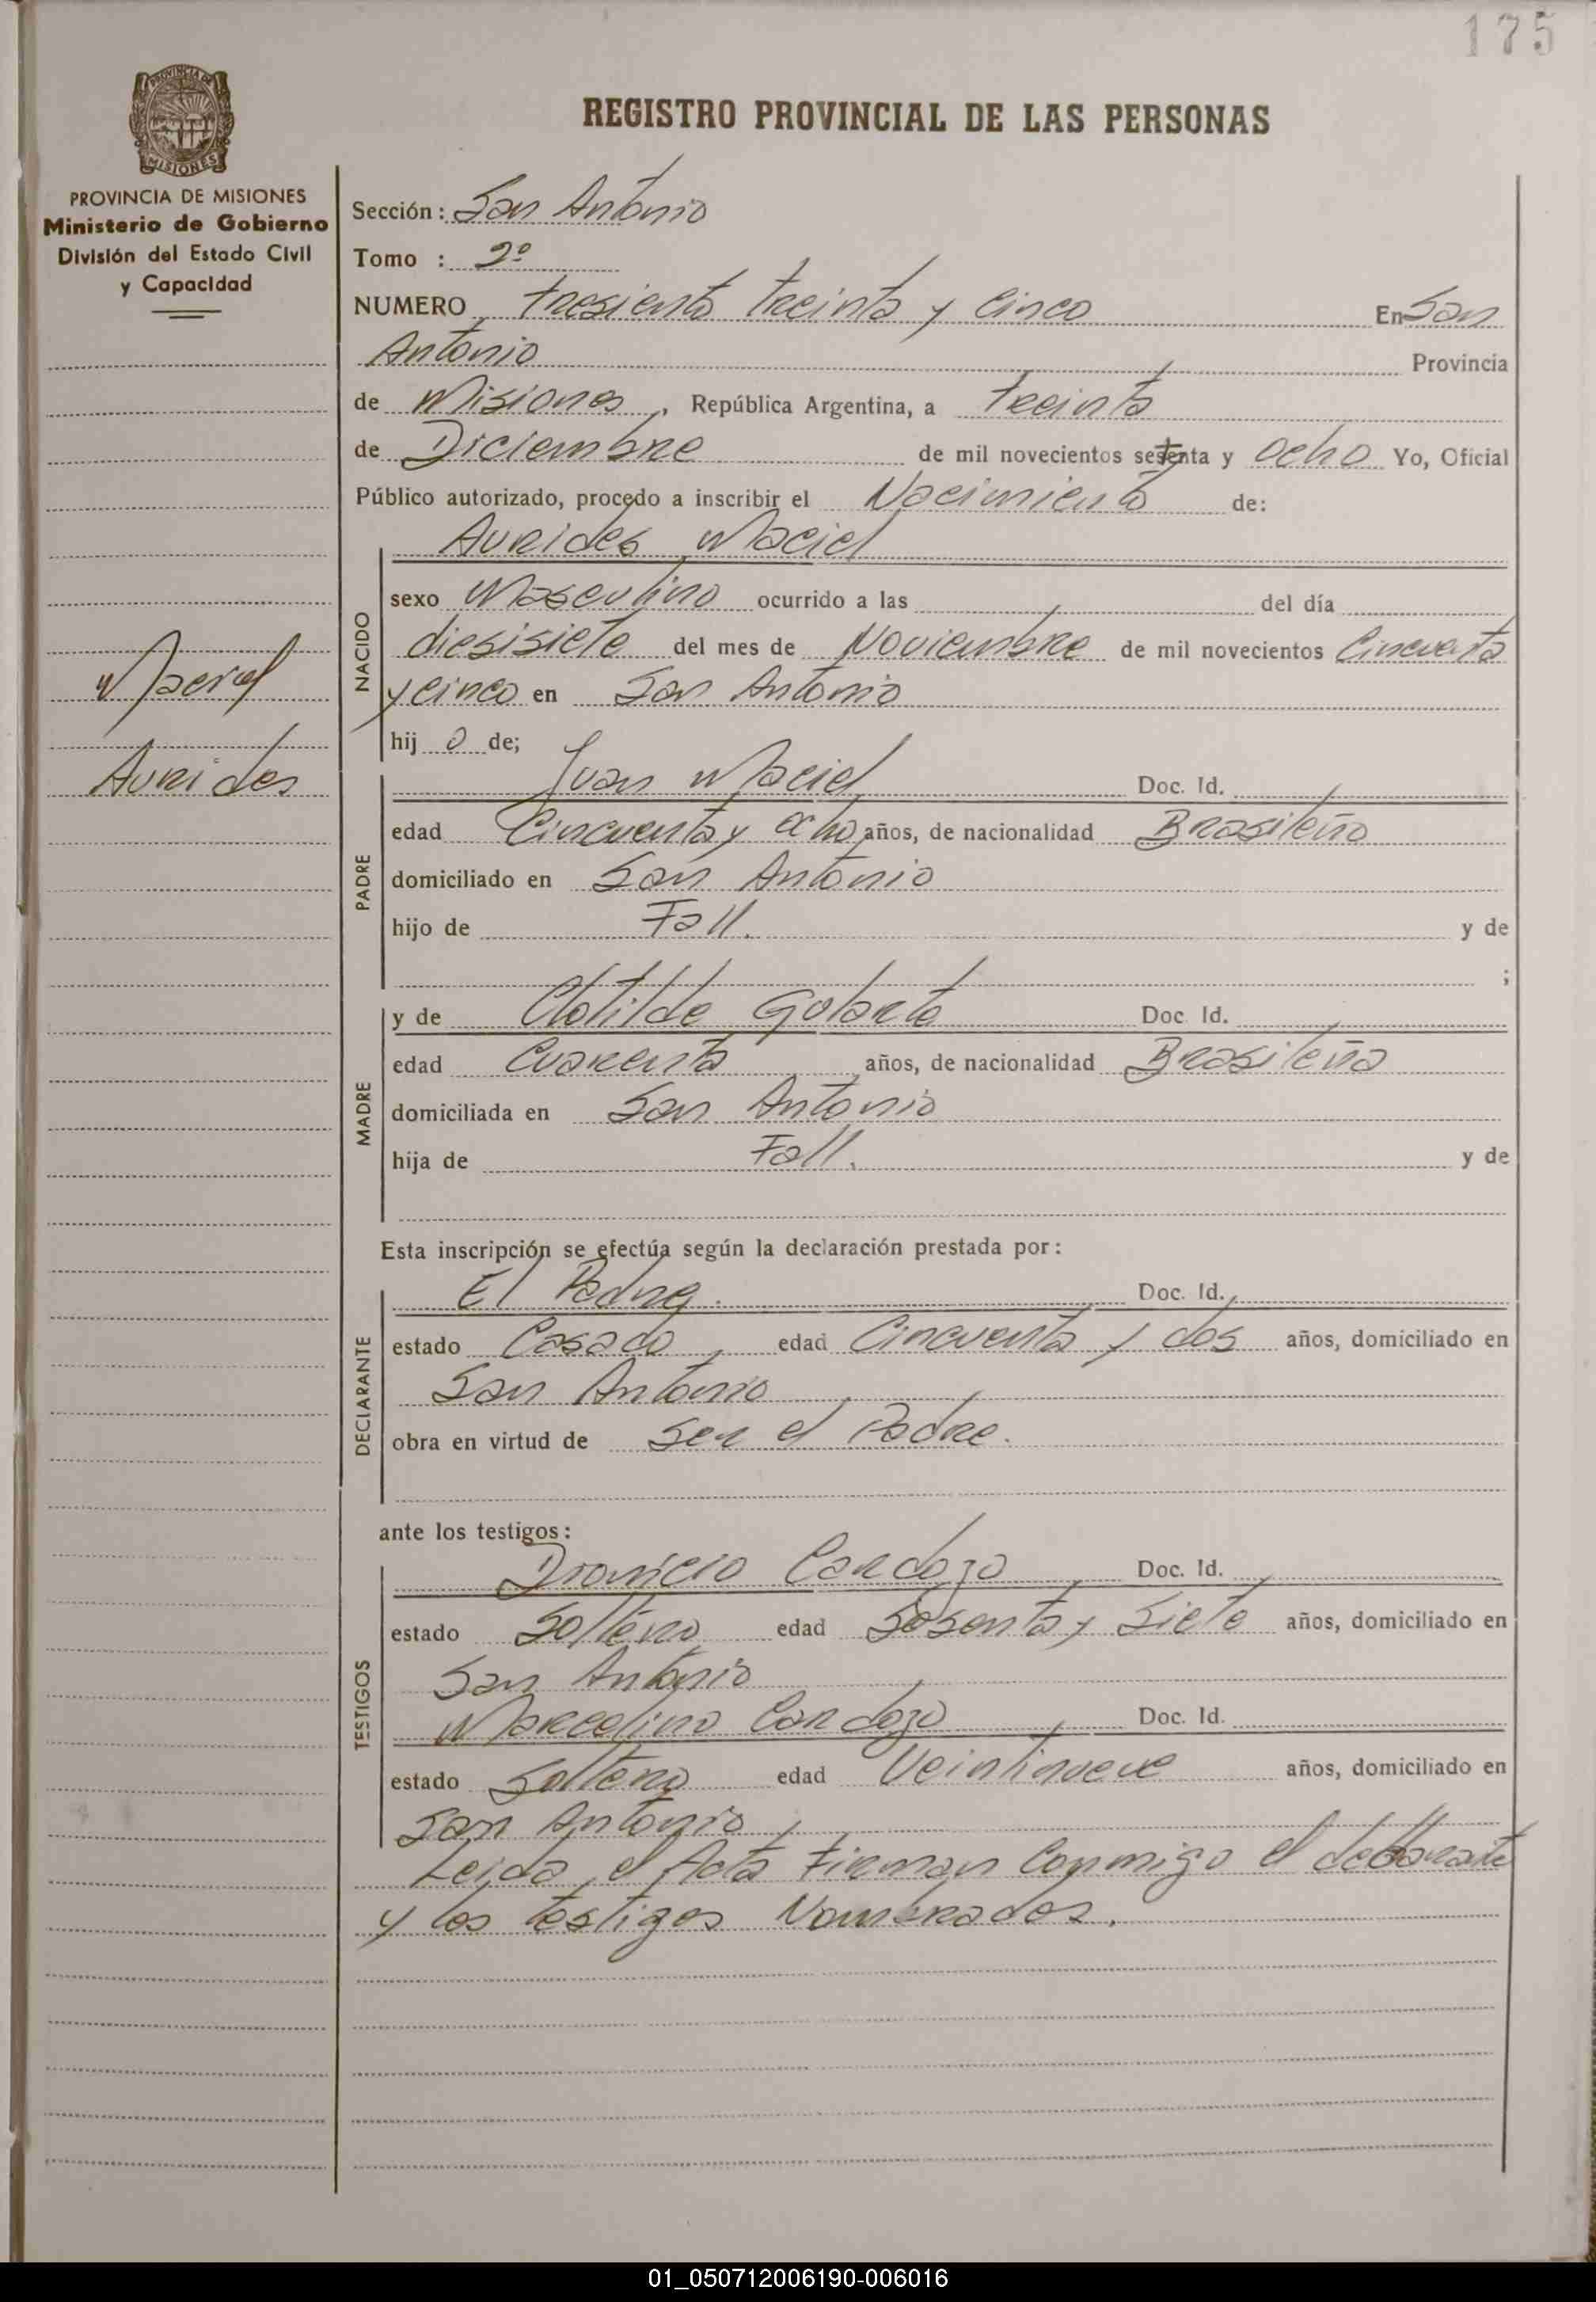 175
REGISTRO PROVINCIAL DE LAS PERSONAS
PROVINCIA DE MISIONES
MISIONES
PROVINCIA DE MISIONES
Ministerio de Gobierno
División del Estado Civil
y Capacidad
Maciel
Aurides
Sección: San Antonio
Tomo : 2º
NUMERO tresiento treinta y cinco En San
Antonio Provincia
de Misiones, República Argentina, a treinta
de Diciembre de mil novecientos setenta y ocho Yo, Oficial
Público autorizado, procedo a inscribir el Nacimiento de:
NACIDO
Aurides Maciel
sexo Masculino ocurrido a las del día
diesisiete del mes de Noviembre de mil novecientos Cincuenta
y cinco en San Antonio
hij o de;
PADRE
Juan Maciel Doc. Id.
edad Cincuenta y ocho años, de nacionalidad Brasileño
domiciliado en San Antonio
hijo de Fall. y de
;
MADRE
y de Clotilde Golarte Doc Id.
edad Cuarenta años, de nacionalidad Brasileña
domiciliada en San Antonio
hija de Fall. y de
Esta inscripción se efectúa según la declaración prestada por:
DECLARANTE
El Padre. Doc. Id.
estado Casado edad Cincuenta y dos años, domiciliado en
San Antonio
obra en virtud de ser el Padre.
ante los testigos:
TESTIGOS
Dionicio Cardozo Doc. Id.
estado Soltero edad Sesenta y Siete años, domiciliado en
San Antonio
Marcelino Cardozo Doc. Id.
estado Soltero edad Veintinueve años, domiciliado en
San Antonio
Leida el Acta Firman Conmigo el declarante
y los testigos Nombrados.
01_050712006190-006016